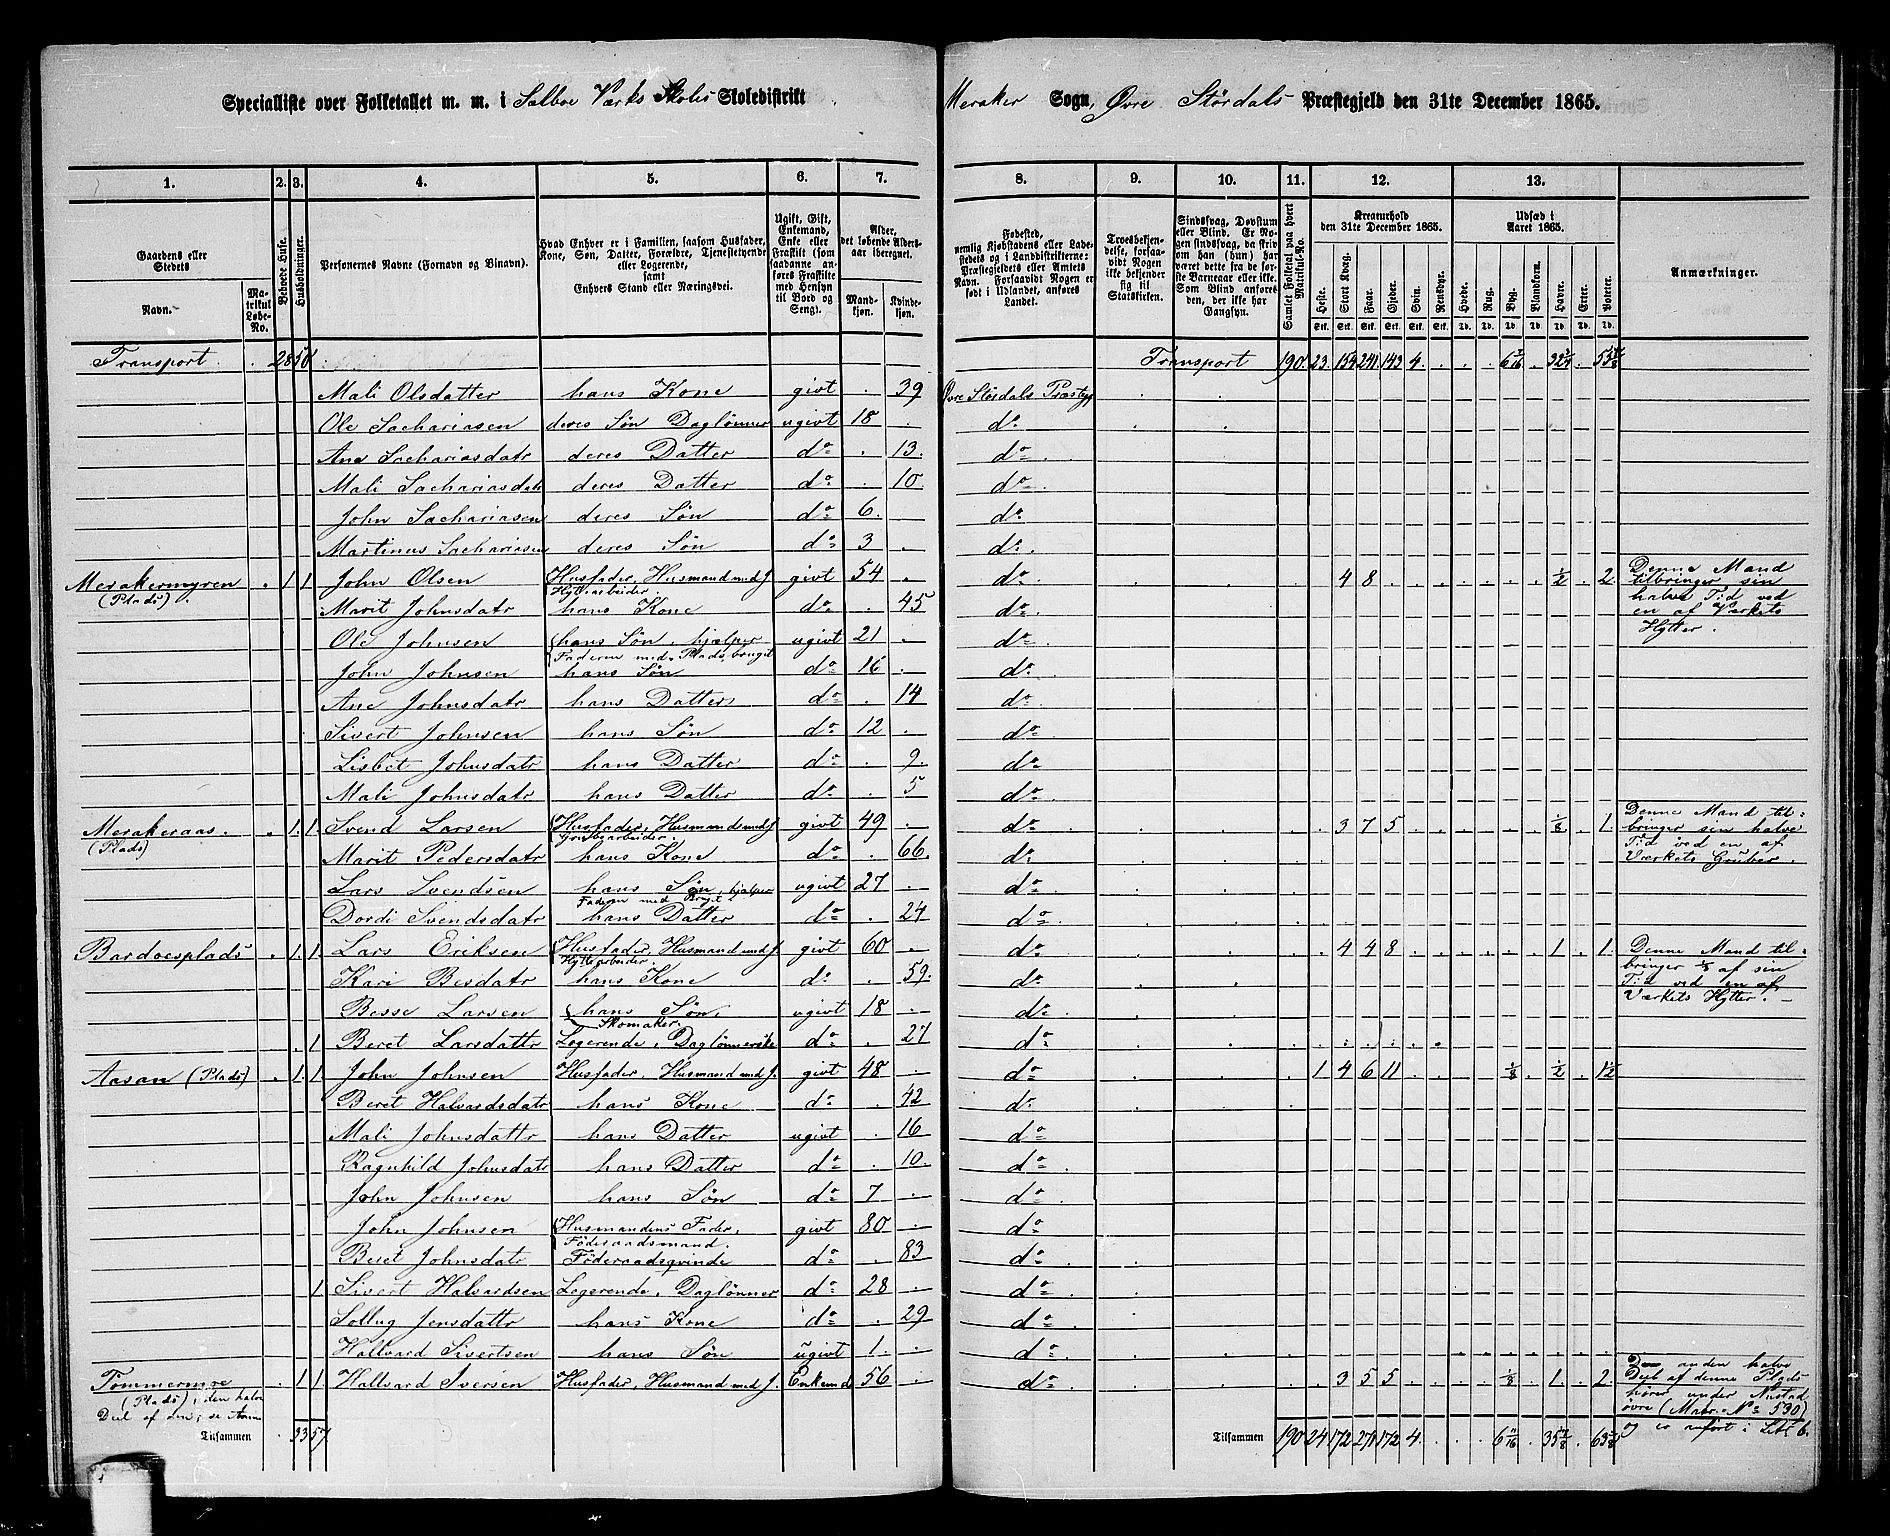 Specialliste over Folketallet m. m. i Selboe Værks Skoles Skoledistrikt Meraker Sogn, Øvre Størdals Præstegjeld den 31te December 1865.
1. 2. 3. 4. 5. 6. 7. 8. 9. 10. 11. 12. 13.
Gaardens eller Stedets
Navn. Matrikul Løbe-No.
Beboede Huse.
Husholdninger.
Personernes Navne (Fornavn og Binavn).
Hvad Enhver er i Familien, saasom Husfader, Kone, Søn, Datter, Forældre, Tjenestetyende eller Logerende, samt Enhvers Stand eller Næringsvei.
Ugift, Gift, Enkemand, Enke eller Fraskilt (som saadanne anføres Fraskilte med Hensyn til Bord og Seng).
Alder, det løbende Alders-aar iberegnet.
Mandkjøn. Kvindekjøn.
Fødested, nemlig Kjøbstadens eller Ladestedets og i Landdistrikterne: Præstegjeldets eller Amtets Navn. Forsaavidt Nogen er født i Udlandet, anføres Landet.
Troesbekjendelse, forsaavidt Nogen ikke bekjender sig til Statskirken.
Sindssvag, Døvstum eller Blind. Er Nogen sindssvag, da skriv om han (hun) har været dette fra de første Barneaar eller ikke. Som Blind anføres den, der ikke har Gangsyn.
Samlet Folketal paa hvert Matrikul-No.
Kreaturhold den 31te December 1865.
Heste. Stort Kvæg. Faar. Gjeder. Svin. Rensdyr.
Udsæd i Aaret 1865.
Hvede. Rug. Byg. Blandkorn. Havre. Erter. Poteter.
Anmærkninger.
Transport . 28 50 Transport 190. 23. 154 241 143 4.
Mali Olsdatter hans Kone givt . 39 Øvre Stördals Præstegj
Ole Sachariasen deres Søn Daglønner ugivt 18 . do
Ane Sachariasdatr deres Datter do . 13. do
Mali Sachariasdatr deres Datter do . 10. do
John Sachariasen deres Søn do 6. do
Martinus Sachariasen deres Søn do 3 . do
Merakermyren (Plads) . 1 1 John Olsen Husfader, Husmand med J. Hyttearbeider. givt 54 . do 4 8 . . . . . . . ½ . 2. Denne Mand tilbringer sin halve Tid ved en af Værkets Hytter.
Marit Johnsdatr hans Kone do . 45 do
Ole Johnsen hans Søn, hjælper Faderen med Pladsbruget ugivt 21 . do
John Johnsen hans Søn do 16 . do
Ane Johnsdatr hans Datter do . 14 do
Sivert Johnsen hans Søn do 12 . do
Lisbet Johnsdatr hans Datter do . 9. do
Mali Johnsdatr hans Datter do . 5 do
Merakeraas (Plads) . 1. 1. Svend Larsen Husfader, Husmand med J. Grubearbeider. givt 49 . do . 3 7 5 . . . . . . ⅛ . 1. Denne Mand tilbringer sin halve Tid ved en af Værkets Gruber.
Marit Pedersdatr hans Kone do . 66. do
Lars Svendsen hans Søn, hjælper Faderen med Bruget ugivt 27 . do
Dordi Svendsdatr hans Datter do . 24 do
Bardoesplads . 1. 1. Lars Eriksen Husfader, Husmand med J. Hyttearbeider. givt 60 . do . 4 4 8 . . . . . . 1 . 1. Denne Mand tilbringer ⅓ af sin Tid ved en af Værkets Hytter. -
Kari Besdatr hans Kone do . 59. do
Besse Larsen hans Søn, Skomaker. ugivt 18 . do
. 1 Beret Larsdattr Logerende, Daglønnerske do . 27 do
Aasan (Plads) . 1. 1. John Johnsen Husfader, Husmand med J. givt 48 . do 1 4 6 11 . . . . ⅛ . ½ . 1½
Beret Halvardsdatr hans Kone do . 42 do
Mali Johnsdattr hans Datter ugivt . 16 do
Ragnhild Johnsdatr hans Datter do . 10. do
John Johnsen hans Søn do 7 . do
John Johnsen Husmandens Fader, Föderaadsmand. givt 80 . do
Beret Johnsdatr Föderaadsqvinde do . 83 do
1 Sivert Halvardsen Logerende, Daglønner do 28 . do
Sollug Jensdattr hans Kone do . 29 do
Hallvard Sivertsen hans Søn ugivt 1. . do
Tømmermoe (Plads), den halve Deel af den, se . 1 1 Hallvard Iversen Husfader, Husmand med J. Enkemd 56 . do . 3 5 5 . . . . ⅛ . 1. . 2. anden halve Deel af denne Plads hører under Nustad øvre (Matr. No 530) og er anført i
Tilsammen . 33 57. Tilsammen 190 24 172 271 172 4.